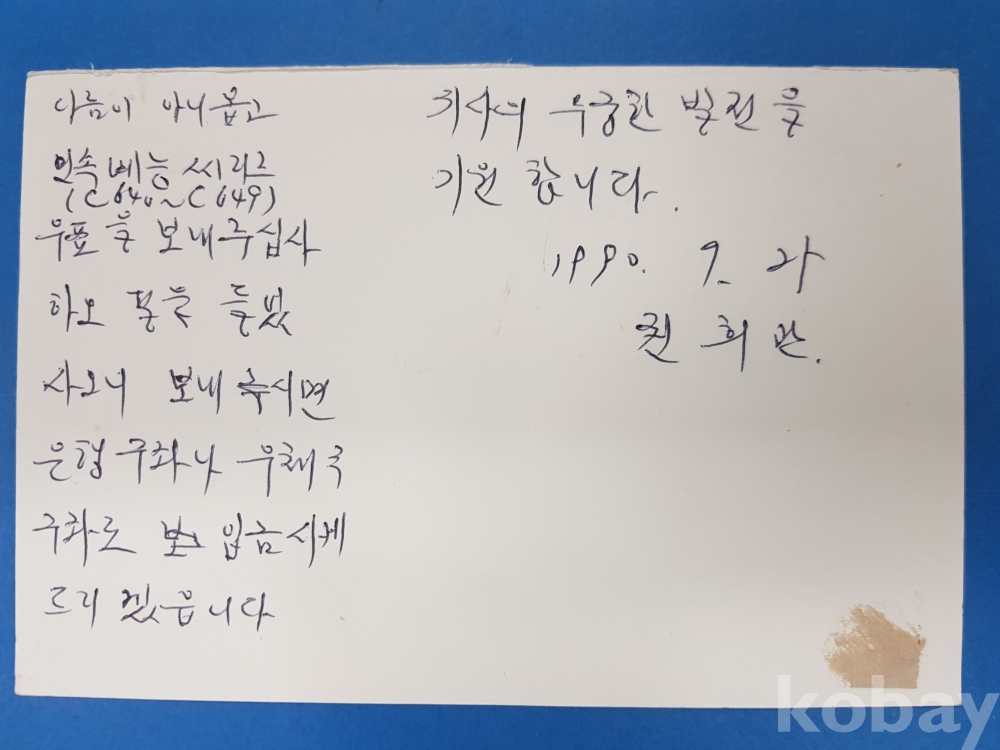 다름이 아니옵고
민속예능 씨리즈
(C640~C649)
우표를 보내주십사
하오 을 드렸
사오니 보내 주시면
은행 구좌나 우체국
구좌로 입금시켜
드리겠읍니다
귀사의 무궁한 발전을
기원 합니다.
1990. 9.
권 희
kobay